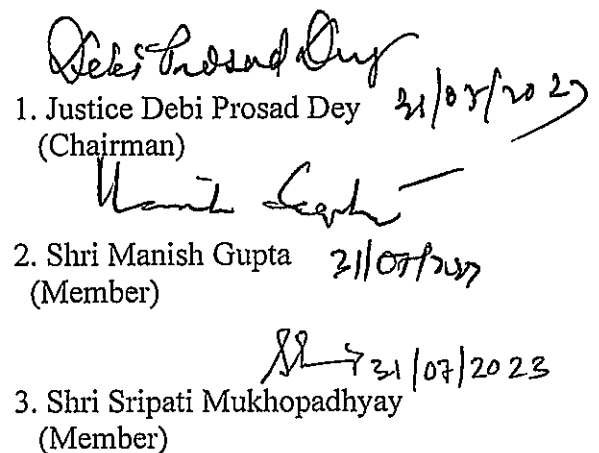 Debi Prosad Dey
1. Justice Debi Prosad Dey 31/07/2023
(Chairman)
Manish Gupta
2. Shri Manish Gupta 31/07/2023
(Member)
31/07/2023
3. Shri Sripati Mukhopadhyay
(Member)